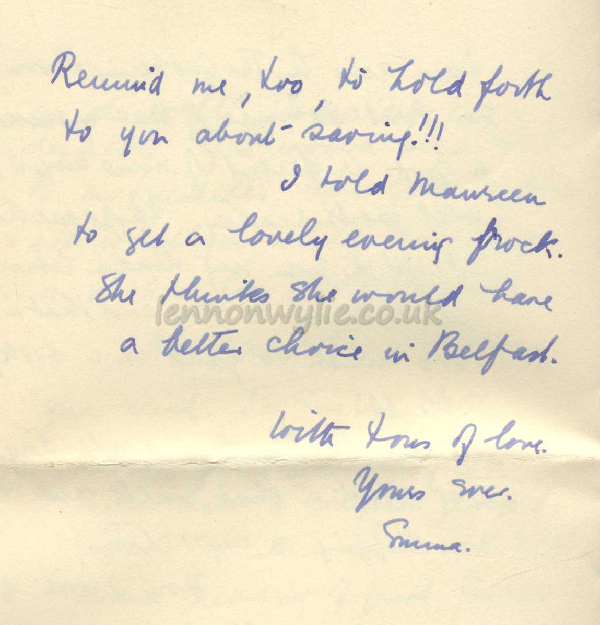 Remind me, too, to hold forth
to you about saving!!!
I told Maureen
to get a lovely evening frock.
She thinks she would have
lennonwylie.co.uk
a better choice in Belfast.
With tons of love.
Yours ever.
Emma.